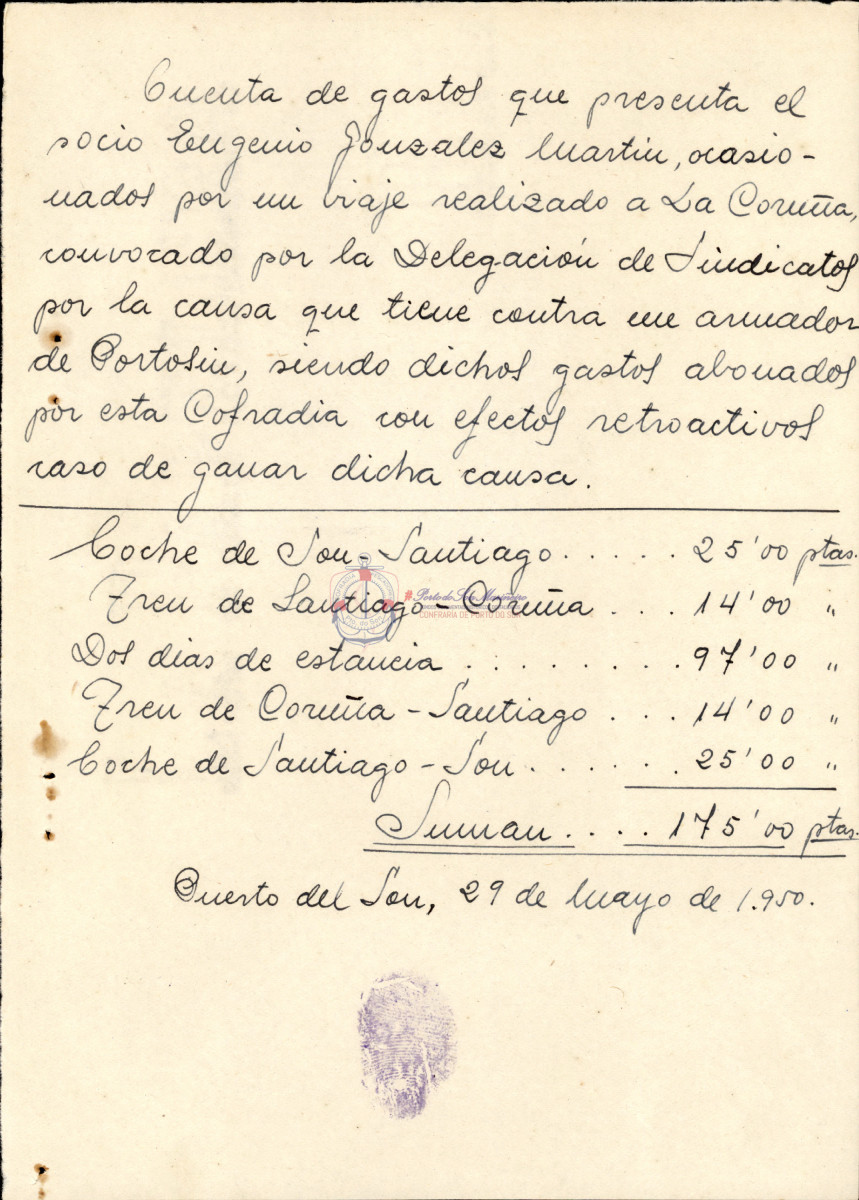 Cuenta de gastos que presenta el
socio Eugenio Gonzalez Martin, ocasio-
nados por un viaje realizado a La Coruña,
convocado por la Delegación de Sindicatos
por la causa que tiene contra un armador
de Portosin, siendo dichos gastos abonados
por esta Cofradia con efectos retroactivos
caso de ganar dicha causa.
Coche de Son-Santiago ..... 25'00 ptas.
Tren de Santiago-Coruña ... 14'00 "
Dos dias de estancia ......... 97'00 "
Tren de Coruña-Santiago ... 14'00 "
Coche de Santiago-Son ...... 25'00 "
Suman .... 175'00 ptas.
Puerto del Son, 29 de Mayo de 1.950.
#Porto do Son Mariñeiro
CONFRARÍA DE PORTO DO SON